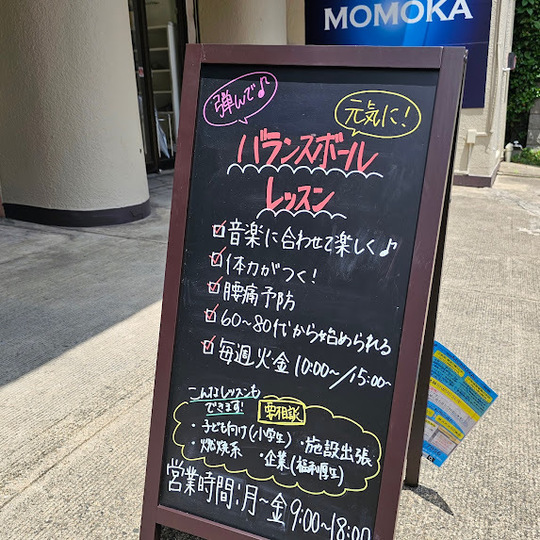 MOMOKA
弾んで♪
元気に!
バランスボール
レッスン
☑音楽に合わせて楽しく♪
☑体力がつく!
☑腰痛予防
☑60〜80代から始められる
☑毎週火金 10:00〜/15:00〜
こんなレッスンも
できます!
要相談
・子ども向け(小学生) ・施設出張
・燃焼系 ・企業(福利厚生)
営業時間:月〜金 9:00〜18:00